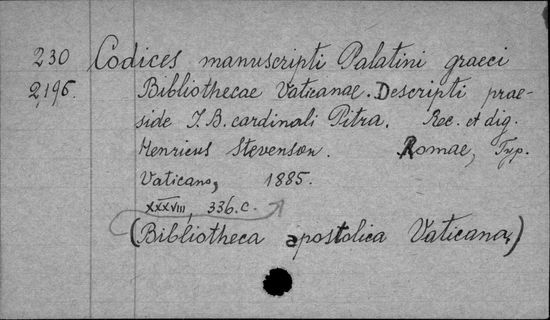 230 Codices manuscripti Palatini graeci
2,196. Bibliothecae Vaticanae. Descripti prae-
side I. B. cardinali Pitra. Rec. et dig.
Henricus Stevenson. Romae, Typ.
Vaticano, 1885.
XXXVIII, 336.c.
(Bibliotheca apostolica Vaticana.)